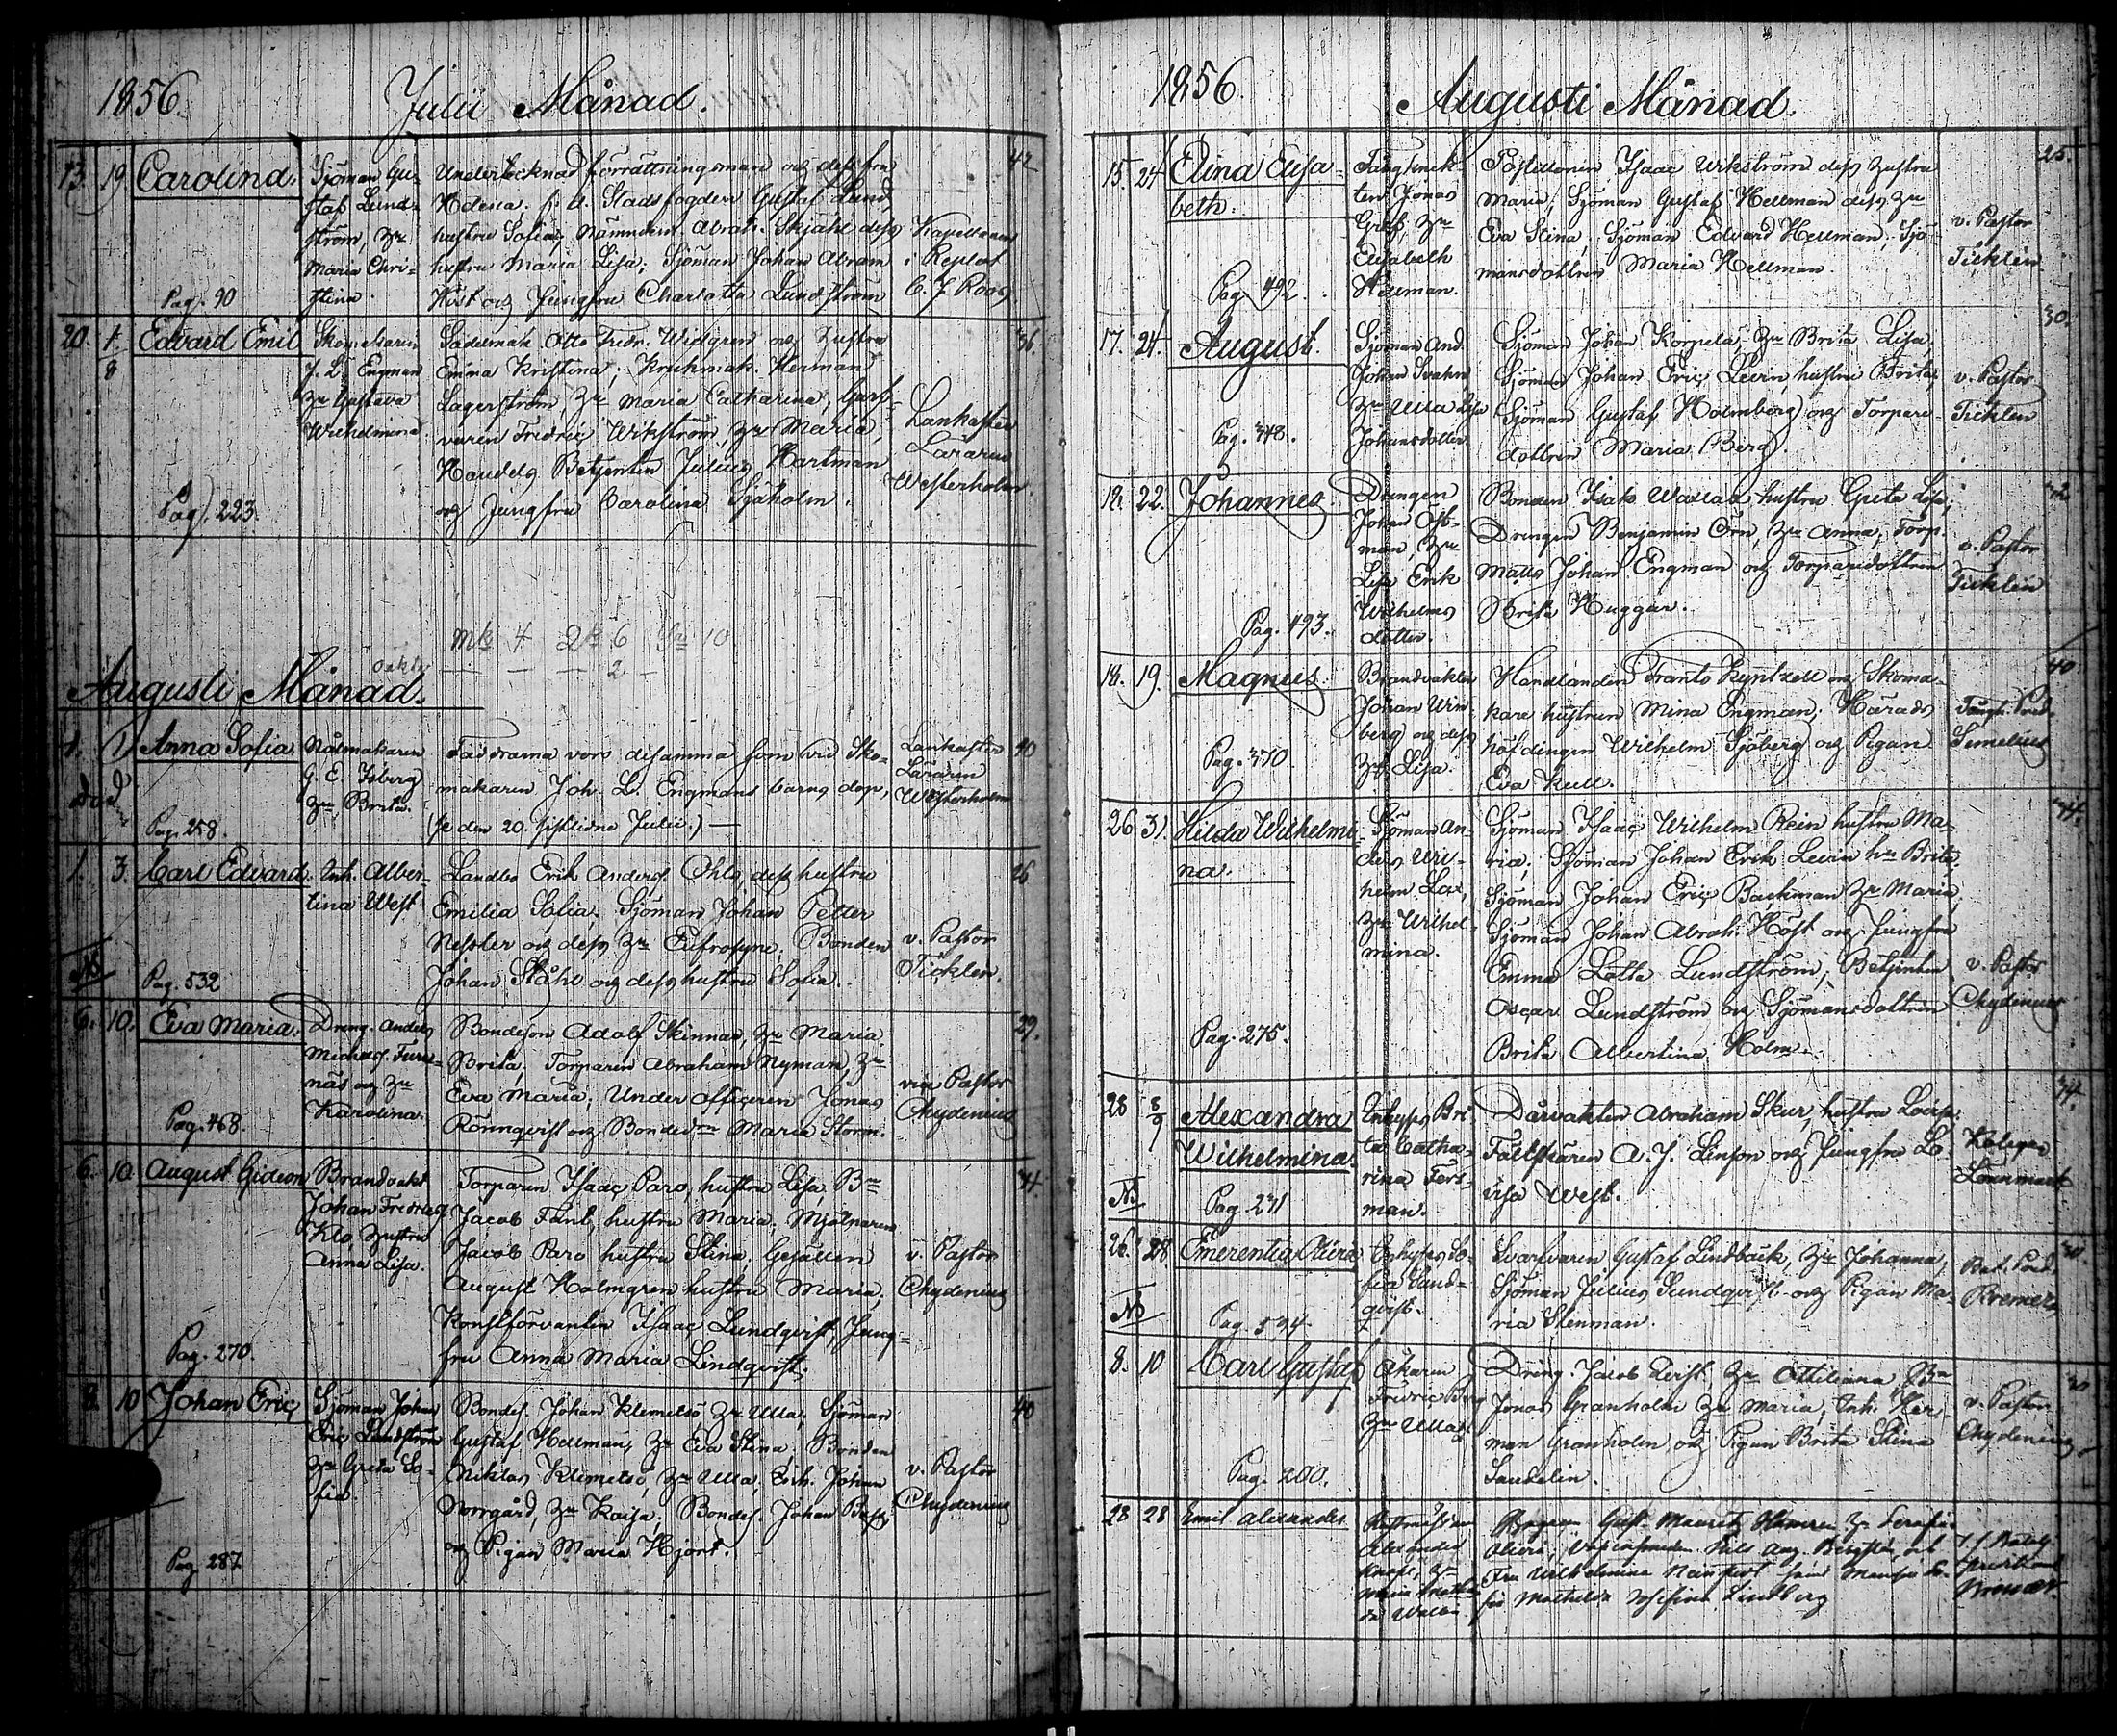 1856. Julii Månad.
13. 19 Carolina.
Pag. 90
Sjöman Gu-
staf Lund-
ström, Hu
Maria Chri-
stina.
Undertecknad förrättningsman och dess fru
Hedesia. f. d. Stadsfogden Gustaf Lund
hustru Sofia, Nämndem. Abrah. Skjähl dess
hustru Maria Lisa; Sjöman Johan Abram
Höst och Jungfru Charlotta Lundström
Kapellanen
i Replot
C. J. Roos
42
20. 4/8 Edvard Emil
Pag. 223.
Skomakaren
J. L. Engman
Hu Gustava
Wilhelmina
Sadelmak. Otto Fredr. Widgren och hustru
Emma Kristina; Krukmak. Herman
Lagerström, Hu Maria Catharina, Garf-
varen Fredric Wikström, Hu Maria,
Handels Betjenten Julius Hartman
och Jungfru Carolina Sjöholm.
Lankaster
Läraren
Westerholm.
36.
mk 4 Qk 6 Sa 10
oäkta — — — 2 —
Augusti Månad.
1. 1 Anna Sofia
död
Pag. 258.
Nålmakaren
G. E. Isberg
Hu Brita.
Faddrarna voro desamma som vid Sko-
makaren Joh. L. Engmans barns dop,
(se den 20. sistlidne Julii.) —
Lankaster
Läraren
Westerholm
40
1. 3. Carl Edvard
NB
Pag. 532
Inh. Alber-
tina West
Landbo Erik Anders. Ohls, dess hustru
Emilia Sofia. Sjöman Johan Petter
Nessler och dess Hu Eufrosyne; Bonden
Johan Ståhl och dess hustru Sofia.
v. Pastor
Ticklén.
26
6. 10. Eva Maria.
Pag. 468.
Dreng. Anders
Michels. Furu-
näs och Hu
Karolina.
Bondeson Adolf Skinnar, Hu Maria
Brita, Torparen Abraham Nyman, Hu
Eva Maria; Under officeren Jonas
Rönnqvist och Bonded:rn Maria Storm.
vice Pastor
Chydenius
29.
6. 10. August Gideon
Pag. 270.
Brandvakt
Johan Fredric
Klo hustru
Anna Lisa.
Torparen Isaac Paro, hustru Lisa Bn
Jacob Fant, hustru Maria. Mjölnaren
Jacob Paro hustru Stina, Gesällen
August Holmgren hustru Maria,
Konstförvanten Isaac Lundqvist, Jung-
fru Anna Maria Lindqvist.
v. Pastor
Chydenius
41.
8. 10 Johan Eric
Pag 287.
Sjöman Johan
Eric Landström
Hu Greta So-
fia.
Bondes. Johan Klemetsö, Hu Ulla; Sjöman
Gustaf Hellman, Hu Eva Stina, Bonden
Niklas Klemetsö, Hu Ulla, Inh. Johan
Norrgård, Hu Kaisa; Bondes. Johan Bass
och Pigan Maria Hjort.
v. Pastor
Chydenius
40
1856. Augusti Månad.
15. 24 Elina Elisa-
beth.
Pag 492.
Fångknek-
ten Jonas
Gref, Hu
Elisabeth
Hellman.
Postillonen Isaac Wikström dess hustru
Maria; Sjöman Gustaf Hellman dess Hu
Eva Stina, Sjöman Edvard Hellman, Sjö-
mansdottren Maria Hellman.
v. Pastor
Ticklén
25.
17. 24. August.
Pag. 348.
Sjöman And.
Johan Svahn
Hu Ulla Lisa
Johansdotter
Sjöman Johan Korpela, Hu Brita Lisa,
Sjöman Johan Eric Levin hustru Brita,
Sjöman Gustaf Holmberg och Torpare-
dottren Maria Berg.
v. Pastor
Ticklén
30.
18. 22. Johannes.
Pag. 493.
Drengen
Johan Öst-
man, Hu
Lisa Erik
Wilhelms
dotter.
Bonden Isak Wallar hustru Greta Lisa,
Drengen Benjamin Örn, Hu Anna, Torp.
Matts Johan Engman och Torparedottren
Brita Huggar.
v. Pastor
Ticklén
18. 19. Magnus.
Pag. 370
Brandvakten
Johan Win-
berg och dess
Hu Lisa.
Handlanden Frants Kyntzell och Skoma-
kare hustrun Mina Engman; Härads
höfdingen Wilhelm Sjöberg och Pigan
Eva Kull.
Fångh. Pred.
Simelius
40.
26 31. Hilda Wilhelmi-
na.
Pag. 275.
Sjöman An-
ders Wil-
helm Lax,
Hu Wilhel-
mina.
Sjöman Isaac Wilhelm Rein hustru Ma-
ria; Sjöman Johan Erik Levin hu Brita,
Sjöman Johan Eric Backman Hu Maria,
Sjöman Johan Abrah. Höst och Jungfru
Emma Lotta Lundström, Betjenten
Oscar Lundström och Sjömansdottren
Brita Albertina Holm.
v. Pastor
Chydenius
28 8/9 Alexandra
Wilhelmina.
NB
Pag. 271
Enkyps. Bri-
ta Catha-
rina Fors-
man.
Dårvakten Abraham Skur, hustru Lovisa
Fältskären A. J. Linson och Jungfru Lo-
visa West.
Kolegan
Lönnmark
34.
26. 28 Emerentia Olivia
NB
Pag. 534.
Enkyps. So-
fia Sund-
qvist.
Svarfvaren Gustaf Lindback, Hu Johanna,
Sjöman Julius Sundqvist och Pigan Ma-
ria Stenman.
Bat. Pred.
Bremer
30.
8. 10 Carl Gustaf
Pag. 200.
Åkaren
Fredric Berg
Hu Ulla
Dreng. Jacob Qvist, Hu Ottiliana, Bn
Jonas Granholm Hu Maria, Inh. Her-
man Granholm och Pigan Brita Stina
Sandelin.
v. Pastor
Chydenius
30
28 28 Emil Alexander
Alexander
Maria